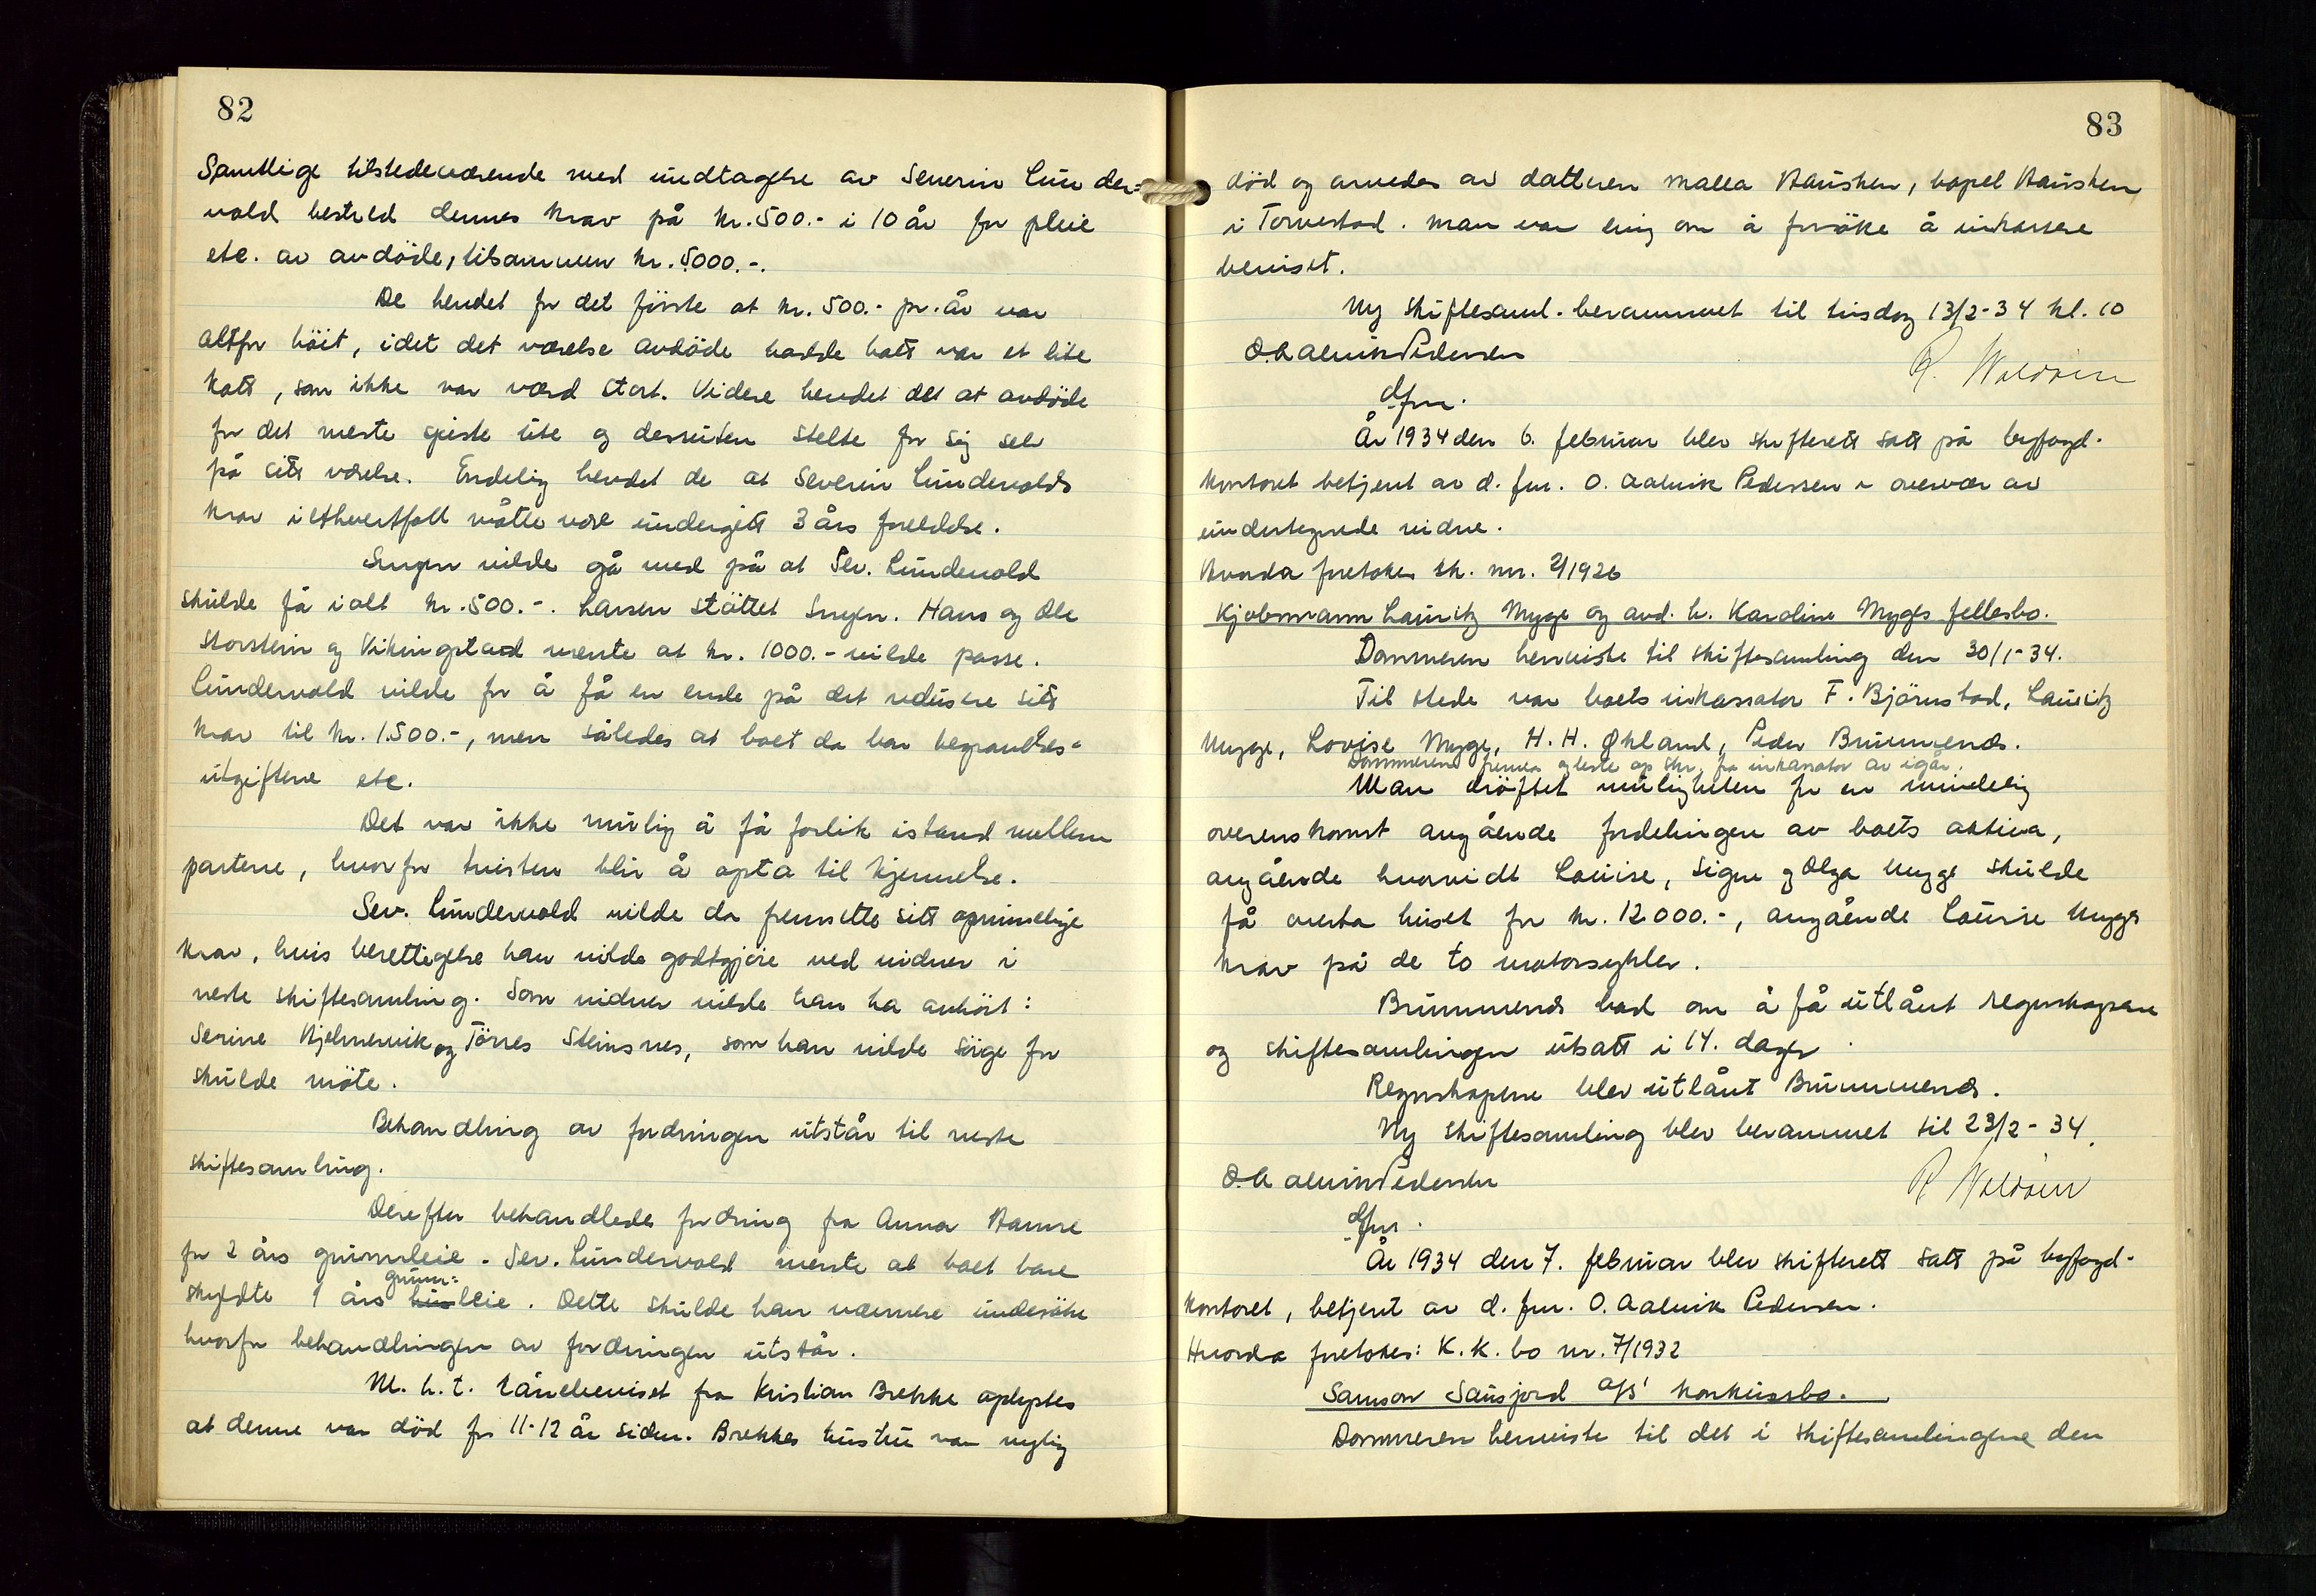 82
Samtlige tilstedeværende med undtagelse av Severin Lunder=
vold bestred dennes krav på kr. 500.- i 10 år for pleie
etc. av avdöde, tilsammen kr. 5000.-.
De hevdet for det förste at kr. 500.- pr. år var
altfor höit, idet det værelse avdöde hadde hatt var et lite
kott, som ikke var værd stort. Videre hevdet det at avdöde
for det meste spiste ute og dessuten stelte for sig selv
på sitt værelse. Endelig hevdet de at Severin Lundevolds
krav i ethvertfall måtte være undergitt 3 års foreldelse.
Ingen vilde gå med på at Sev. Lundevold
skulde få i alt kr. 500.-. Larsen støttet Ingen. Hans og Ole
Storstein og Vikingstad mente at kr. 1000.- vilde passe.
Lundervold vilde for å få en ende på det redusere sitt
krav til kr. 1.500.-, men således at boet da bar begravelses=
utgiftene etc.
Det var ikke mulig å få forlik istand mellem
partene, hvorfor tvisten blir å opta til kjennelse.
Sev. Lundervold vilde da fremsette sitt oprinnelige
krav, hvis berettigelse han vilde godtgjöre ved vidner i
neste skiftesamling. Som vidner vilde han ha anhört:
Serine Hjelmervik og Törres Steinsnes, som han vilde sörge for
skulde möte.
Behandling av fordringen utstår til neste
skiftesamling.
Derefter behandledes fordring fra Anna Hamre
for 2 års grunnleie. Sev. Lundervold mente at boet bare
grunn=
skyldte 1 års husleie. Dette skulde han nærmere undersöke
hvorfor behandlingen av fordringen utstår.
M. h. t. lånebeviset fra Kristian Brekke oplystes
at denne var död for 11-12 år siden. Brekkes hustru var nylig
83
död og arvedes av datteren Malla Hausken, bopel Hausken
i Torvestad. Man var enig om å forsöke å inkassere
beviset.
Ny skiftesaml. berammet til tirsdag 13/2-34 kl. 10
O. Aalvik Pedersen
dfm.
År 1934 den 6. februar blev skifterett satt på byfogd-
kontoret betjent av d. fm. O. Aalvik Pedersen i overvær av
undertegnede vidne.
Hvorda foretokes sk. nr. 2/1926
Kjøbmann Lauritz Mygs og avd. h. Karoline Mygs fellesbo.
Dommeren henviste til skiftesamling den 30/1-34.
Til stede var boets inkassator F. Björnstad, Lauritz
Mygs, Lovise Mygs, H. H. Økland, Peder Brummenæs.
Dommeren fremla og leste op skr. fra inkassator av igår.
Man dröftet muligheten for en mindelig
overenskomst angående fordelingen av boets aktiva,
angående hvorvidt Louise, Signe og Olga Mygs skulde
få overta huset for kr. 12 000.-, angående Lourise Mygs
krav på de to motorsykler.
Brummenæs bad om å få utlånt regnskapene
og skiftesamlingen utsatt i 14. dager.
Regnskapene blev utlånt Brummenæs.
Ny skiftesamling blev berammet til 23/2-34.
O. Aalvik Pedersen
dfm.
År 1934 den 7. februar blev skifterett satt på byfogd-
kontoret, betjent av d. fm. O. Aalvik Pedersen.
Hvorda foretokes: K. K. bo nr. 7/1932
Samson Sausjord A/S' konkursbo.
Dommeren henviste til det i skiftesamlingene den